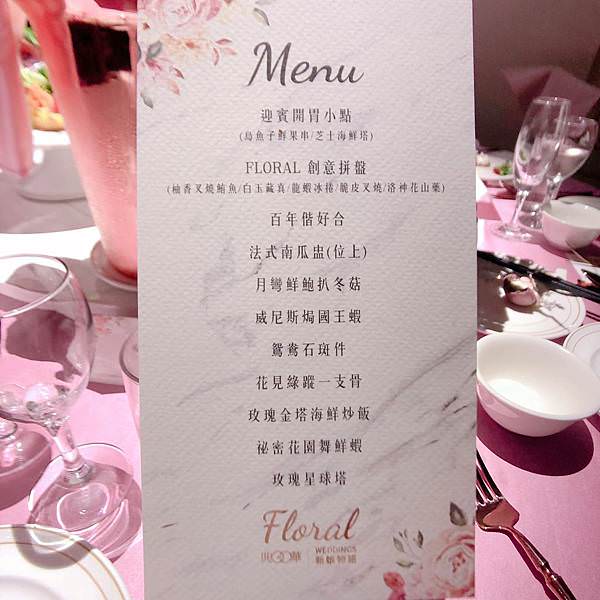 Menu
迎賓開胃小點
(烏魚子鮮果串/芝士海鮮塔)
FLORAL 創意拼盤
(柚香叉燒鮪魚/白玉藏真/龍蝦冰捲/脆皮叉燒/洛神花山藥)
百年偕好合
法式南瓜盅(位上)
月彎鮮鮑扒冬菇
威尼斯焗國王蝦
鴛鴦石斑件
花見綠蹤一支骨
玫瑰金塔海鮮炒飯
祕密花園舞鮮蝦
玫瑰星球塔
Floral
WEDDINGS